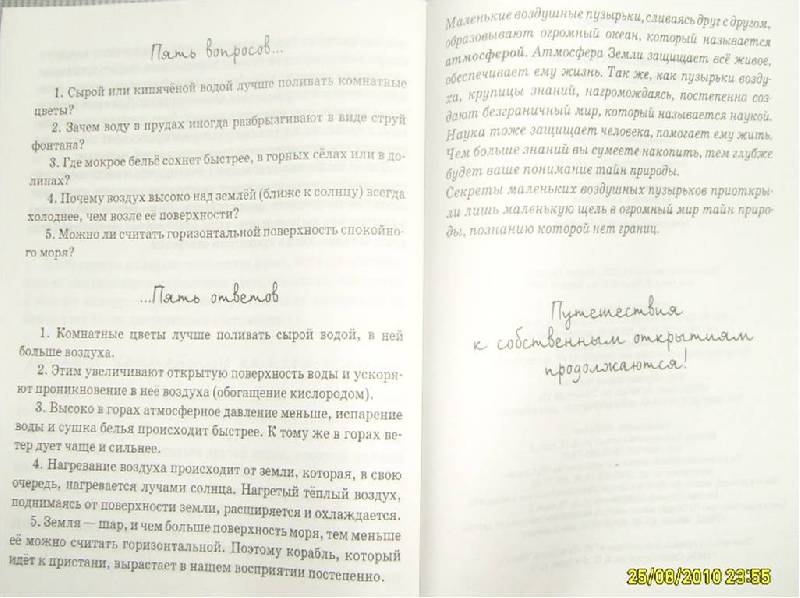 Пять вопросов...
1. Сырой или кипячёной водой лучше поливать комнатные
цветы?
2. Зачем воду в прудах иногда разбрызгивают в виде струй
фонтана?
3. Где мокрое бельё сохнет быстрее, в горных сёлах или в до-
линах?
4. Почему воздух высоко над землёй (ближе к солнцу) всегда
холоднее, чем возле её поверхности?
5. Можно ли считать горизонтальной поверхность спокойно-
го моря?
...Пять ответов
1. Комнатные цветы лучше поливать сырой водой, в ней
больше воздуха.
2. Этим увеличивают открытую поверхность воды и ускоря-
ют проникновение в неё воздуха (обогащение кислородом).
3. Высоко в горах атмосферное давление меньше, испарение
воды и сушка белья происходит быстрее. К тому же в горах ве-
тер дует чаще и сильнее.
4. Нагревание воздуха происходит от земли, которая, в свою
очередь, нагревается лучами солнца. Нагретый тёплый воздух,
поднимаясь от поверхности земли, расширяется и охлаждается.
5. Земля — шар, и чем больше поверхность моря, тем меньше
её можно считать горизонтальной. Поэтому корабль, который
идёт к пристани, вырастает в нашем восприятии постепенно.
Маленькие воздушные пузырьки, сливаясь друг с другом,
образовывают огромный океан, который называется
атмосферой. Атмосфера Земли защищает всё живое,
обеспечивает ему жизнь. Так же, как пузырьки возду-
ха, крупицы знаний, нагромождаясь, постепенно соз-
дают безграничный мир, который называется наукой.
Наука тоже защищает человека, помогает ему жить.
Чем больше знаний вы сумеете накопить, тем глубже
будет ваше понимание тайн природы.
Секреты маленьких воздушных пузырьков приоткры-
ли лишь маленькую щель в огромный мир тайн приро-
ды, познанию которой нет границ.
Путешествия
к собственным открытиям
продолжаются!
25/08/2010 23:55